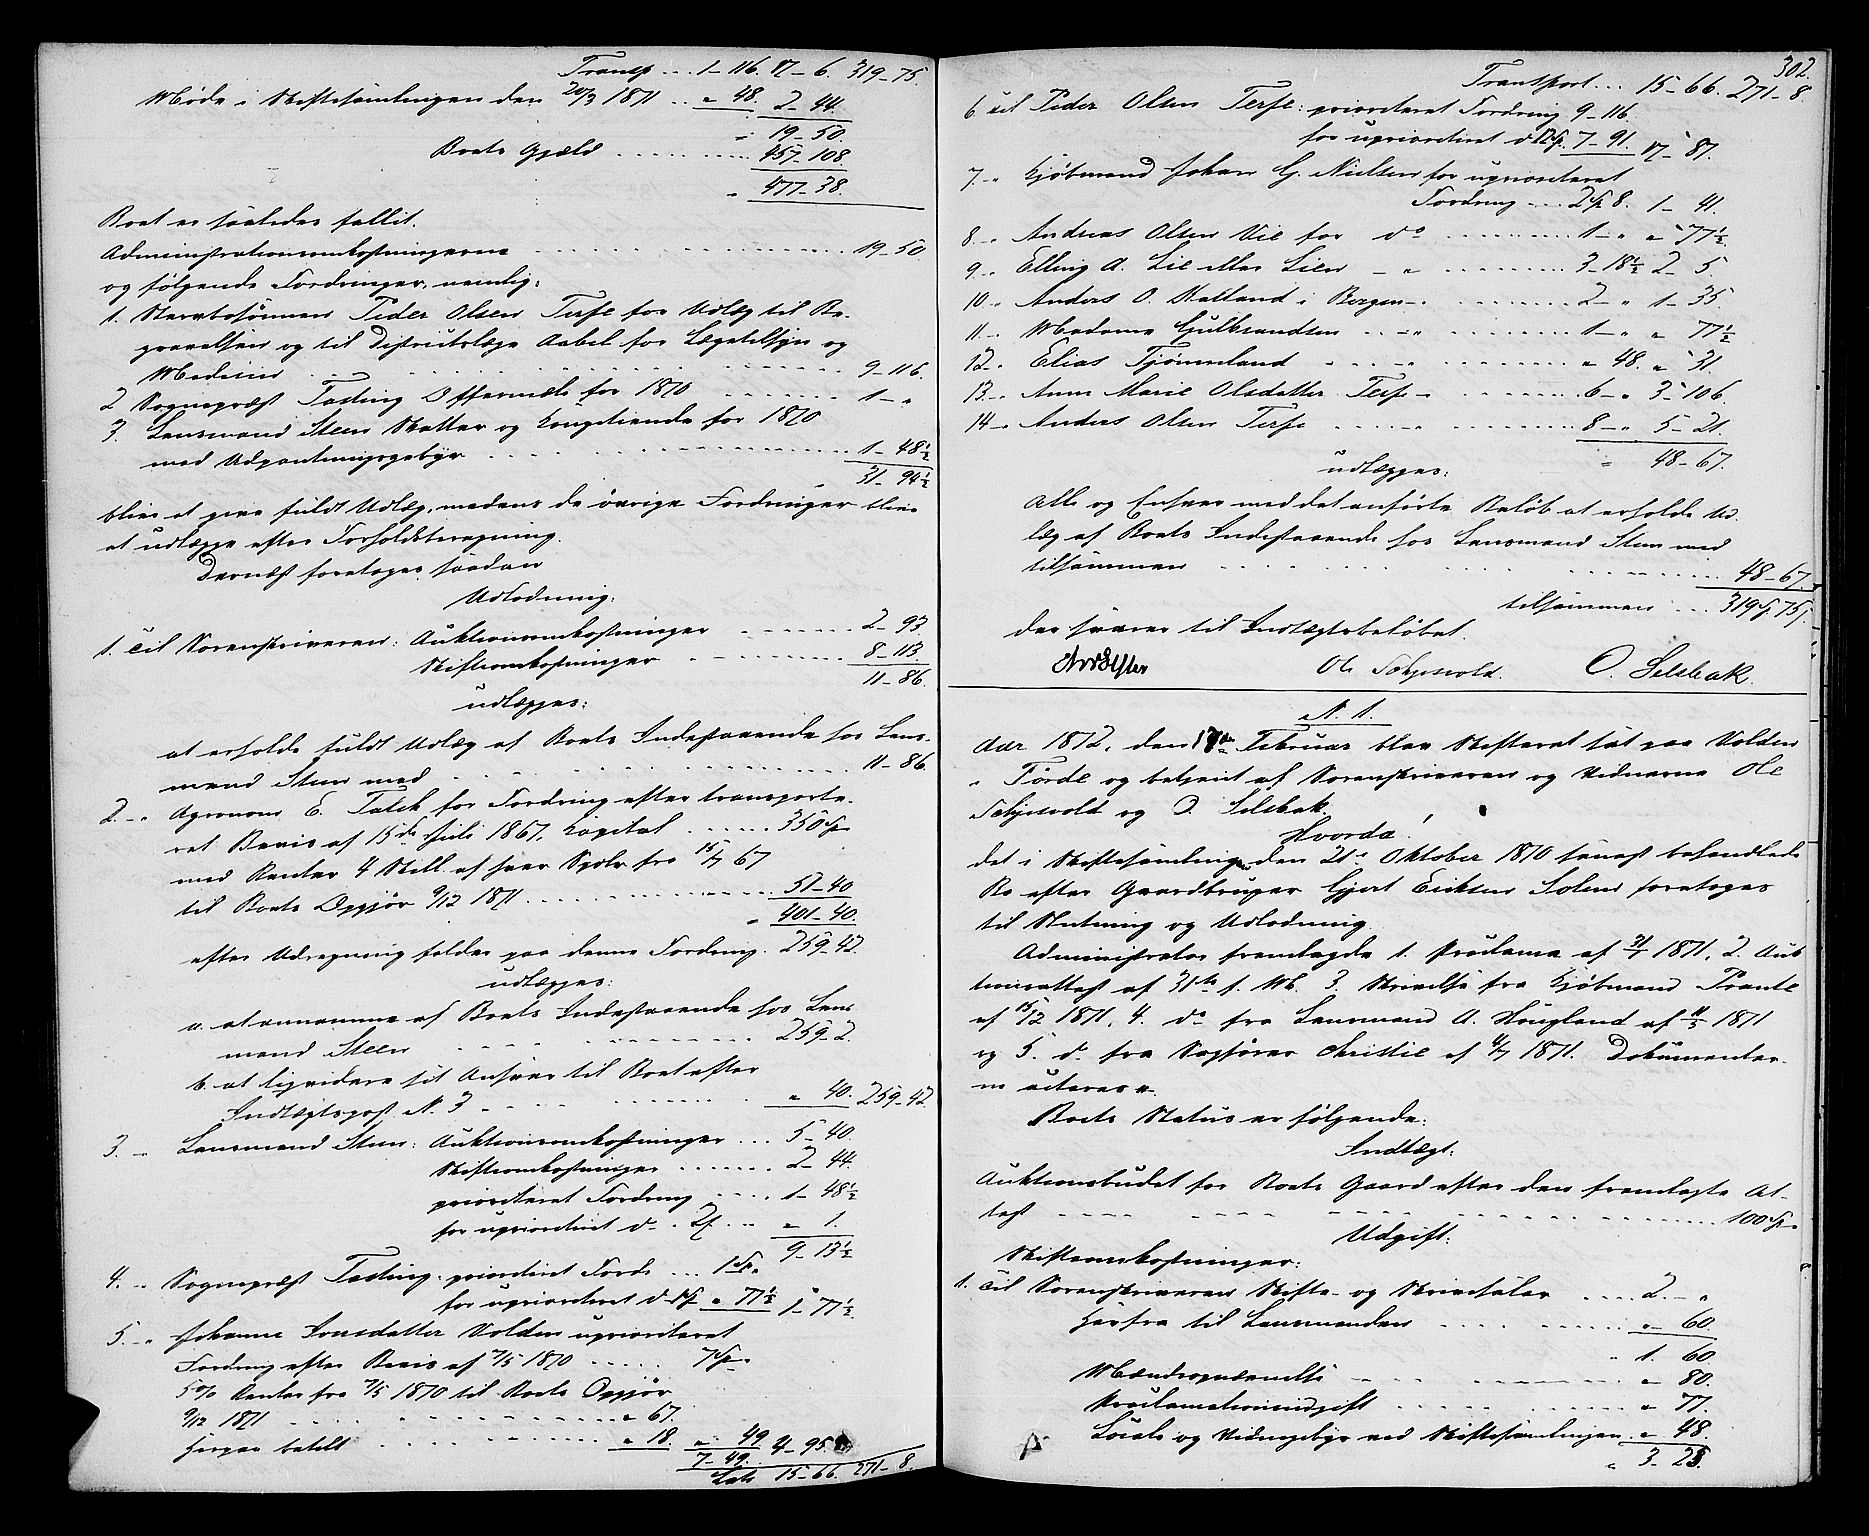 Transp ... 1-116. 17-6. 319-75.
Møde i Skiftesamlingen den 20/3 1871 .. " 48. 2-44.
" 19-50.
Boets Gjæld ........ 457-108.
" 477-38.
Boet er saaledes fallit.
Administrationsomkostningerne ........ 19-50
og følgende Fordringer, nemlig:
1. Stervbosønnen Peder Olsen Terfe for Udlæg til Be-
gravelsen og til Distriktslæge Aabel for Lægetilsyn og
Medicin ........ 9-116.
2 Sogneprest Tasting Offermæle for 1870 ........ 1-"
3. Lensmand Steen Skatter og Kongetiende for 1870
med Udpantningsgebyr ........ 1-48½
31-94½
blive at give fuldt Udlæg, medens de øvrige Fordringer blive
at udlægge efter Forholdsberegning.
Dernæst foretoges saadan
Udlodning:
1. Til Sorenskriveren: Auktionsomkostninger ........ 2-93
Skifteomkostninger ........ 8-113
11-86.
udlægges:
at erholde fuldt Udlæg af Boets Indestaaende hos Lens-
mand Steen med ........ 11-86.
2. -" Agronom E. Falch for Fordring efter transporte-
ret Bevis af 15de Juli 1867, Kapital ..... 350 Sp "
med Renter 4 Skill. af hver Spdlr fra 15/7 67
til Boets Opgjør 9/12 1871 ........ 51-40
" 401-40.
efter Udregning falder paa denne Fordring. 259-42.
udlægges:
a. at annamme af Boets Indestaaende hos Lens
mand Steen ........ 259-2.
b. at liqvidere sit Ansvar til Boet efter
Indtægtspost N. 3 ........ " 40. 259-42.
3. -" Lensmand Steen: Auktionsomkostninger ... 5-40.
Skifteomkostninger ....... 2-44.
prioriteret Fordring ..... 1-48½
for uprioriteret do . 2 ß. .. " 1.
9-13½
4. -" Sogneprest Tasting: prioriteret Fordr. ... 1 Sp "
for uprioriteret do 1 Sp " 77½ 1-77½
5. -" Johanne Jonsdatter Volden uprioriteret
Fordring efter Bevis af 7/5 1870 ..... 7 Sp "
5 % Renter fra 7/5 1870 til Boets Opgjør
9/12 1871 ........ " 67.
Herpaa betalt ........ " 18. " 49 4-95
7-49.
Lats 15-66. 271-8.
302.
Transport ... 15-66. 271-8.
6 til Peder Olsen Terfe: prioriteret Fordring 9-116.
for uprioriteret do 12 Sp. 7-91. 17-87.
7. -" Kjøbmand Johan G. Nielsen for uprioriteret
Fordring ... 2 Sp 8. 1-41.
8. -" Andreas Olsen Vie for do ........ 1-" " 77½
9. -" Elling A. Lie eller Lien -" ........ 3-18½ 2-5.
10. -" Anders O. Halland i Bergen -" ........ 2-" 1-35
11. -" Madame Gulbrandsen ... -" ........ 1-" " 77½
12. -" Elias Tjønneland ........ " 48. " 31.
13. -" Anne Marie Olsdatter Terfe -" ........ 6-" 3-106.
14 -" Anders Olsen Terfe ........ 8-" 5-21.
" 48-67.
udlægges:
Alle og Enhver med det anførte Beløb at erholde Ud-
læg af Boets Indestaaende hos Lensmand Steen med
tilsammen ........ 48-67.
tilsammen ... 319 Sp 75 ß.
der svarer til Indtægtsbeløbet.
Ole Schjesvold. O. Selsbak.
N. 1.
Aar 1872, den 17de Februar blev Skifteret sat paa Volden
i Førde og betjent af Sorenskriveren og Vidnerne Ole
Schjesvold og O. Selsbak.
Hvorda!
det i Skiftesamling den 21de Oktober 1870 senest behandlede
Bo efter Gaardbruger Gjert Eriksen Solem foretoges
til Slutning og Udlodning.
Administrator fremlagde 1. Proclama af 31/1 1871, 2. Auk
tionsattest af 31te f. M. 3. Skrivelse fra Kjøbmand Frante
af 15/12 1871, 4. do fra Lensmand A. Hougland af 11/5 1871
og 5. do fra Sagfører Christie af 4/7 1871. Dokumenter-
ne acteres.
Boets Status er følgende:
Indtægt:
Auktionsbudet for Boets Gaard efter den fremlagte At-
test ........ 100 Sp "
Udgift:
Skifteomkostninger:
1. Til Sorenskriveren Skifte- og Skrivesalær ..... 2. - "
Herfra til Lensmanden ........ " 60.
" 1. 60
Mændsopnævnelse ........ " 80.
Proclamationsudgift ........ " 77.
Locale og Vidnegebyr ved Skiftesamlingen " 48.
" 3-25.